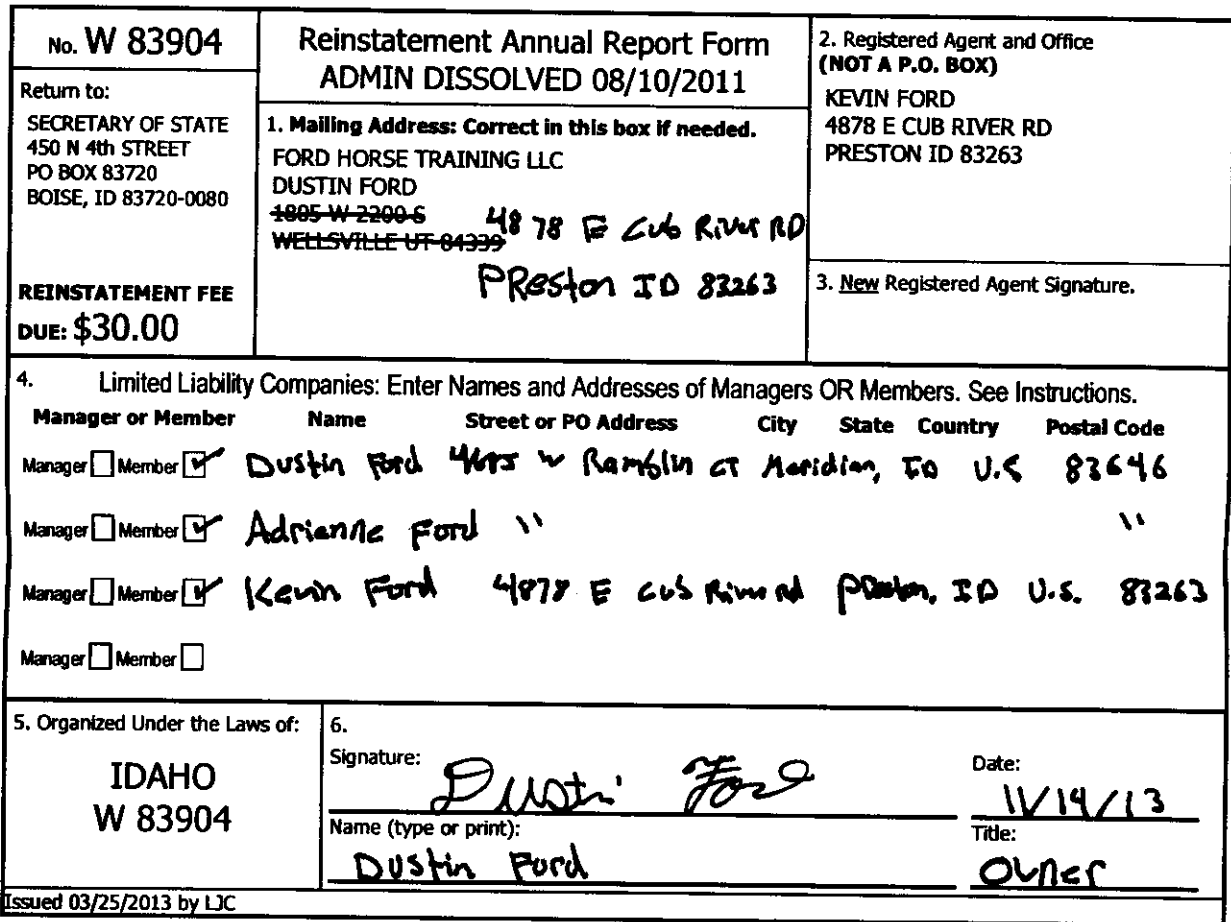 No. W 83904
Return to:
SECRETARY OF STATE
450 N 4th STREET
PO BOX 83720
BOISE, ID 83720-0080
REINSTATEMENT FEE
DUE: $30.00
Reinstatement Annual Report Form
ADMIN DISSOLVED 08/10/2011
1. Mailing Address: Correct in this box if needed.
FORD HORSE TRAINING LLC
DUSTIN FORD
1805 W 2200 S
WELLSVILLE UT 84339
4878 E Cub River RD
PReston ID 83263
2. Registered Agent and Office
(NOT A P.O. BOX)
KEVIN FORD
4878 E CUB RIVER RD
PRESTON ID 83263
3. New Registered Agent Signature.
4. Limited Liability Companies: Enter Names and Addresses of Managers OR Members. See Instructions.
Manager or Member Name Street or PO Address City State Country Postal Code
Manager Member Dustin Ford W Ramblin CT Meridian, ID U.S 83646
Manager Member Adrianne Ford " "
Manager Member Kevin Ford 4878 E Cub River rd Preston, ID U.S. 83263
Manager Member
5. Organized Under the Laws of:
IDAHO
W 83904
6.
Signature: Dustin Ford
Date: 11/14/13
Name (type or print): Dustin Ford
Title: Owner
Issued 03/25/2013 by LJC